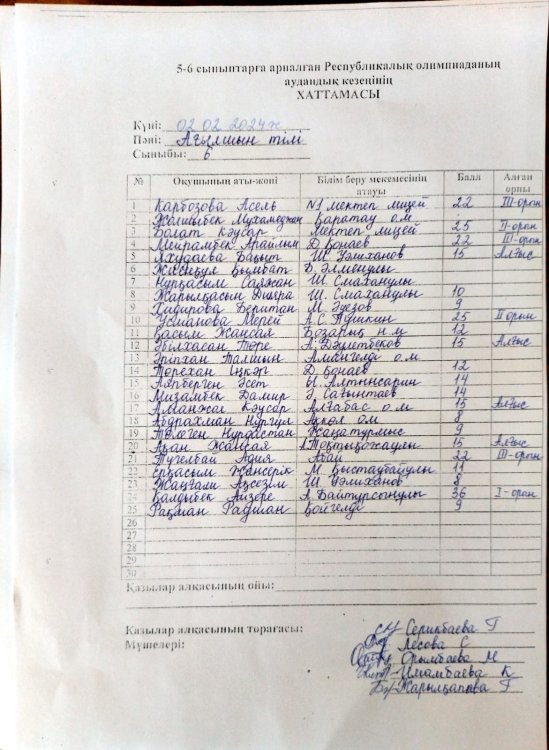 5-6 сыныптарға арналған Республикалық олимпиаданың
аудандық кезеңінің
ХАТТАМАСЫ
Күні: 02.02.2024ж
Пәні: Ағылшын тілі
Сыныбы: 6
№ Оқушының аты-жөні Білім беру мекемесінің атауы Балл Алған орны
1 Карбозова Асель №1 мектеп лицей 22 III-орын
2 Жолшыбек Мухамеджан Қаратау о.м
3 Болат Кәусар Мектеп лицей 25 II-орын
4 Мейрамбек Арайлым Д.Қонаев 22 III-орын
5 Яхудаева Бақыт Ш.Уәлиханов 15 Алғыс
6 Жасұзул Қымбат Б.
7 Нұрқасым Саяжан Ш. Смаханұлы
8 Жарылқасын Дильра Ш. Смаханулы 10
9 Хидирова Беритан М. Әуезов 9
10 Усманова Мерей А.С Пушкин 25 II орын
11 Қасым Жансая Бозарық н.м 12
12 Әбілхасан Төре А.Дәулетбеков 15 Алғыс
13 Әріпхан Талшын Амангелді о.м
14 Төрехан Іңкәр Д. Қонаев 12
15 Алпберген Әсет Ы. Алтынсарин 14
16 Мизамбек Дамир Ә. Сағынтаев 14
17 Аманжол Кәусар Алғабас о.м 15 Алғыс
18 Абдрахман Нұргүл Ақкөл о.м 8
19 Төлеген Нұрдастан Жаңатұрмыс 9
20 Ақан Жансая І.Тоқтықожаұлы 15 Алғыс
21 Түгелбай Адия Абай 22 III-орын
22 Ерқасым Жансерік М. Қыстаубайұлы 11
23 Жаңғали Аңсезім Ш. Уәлиханов 8
24 Қалдыбек Айзере А. Байтурсынұлы 36 I-орын
25 Рақман Раушан Қойгелді 9
26
27
28
29
30
Қазылар алқасының ойы:
Қазылар алқасының торағасы: Серикбаева Г
Мүшелері: Лесова С
Орымбаева М
Имамбаева К
Жарылқапова Г